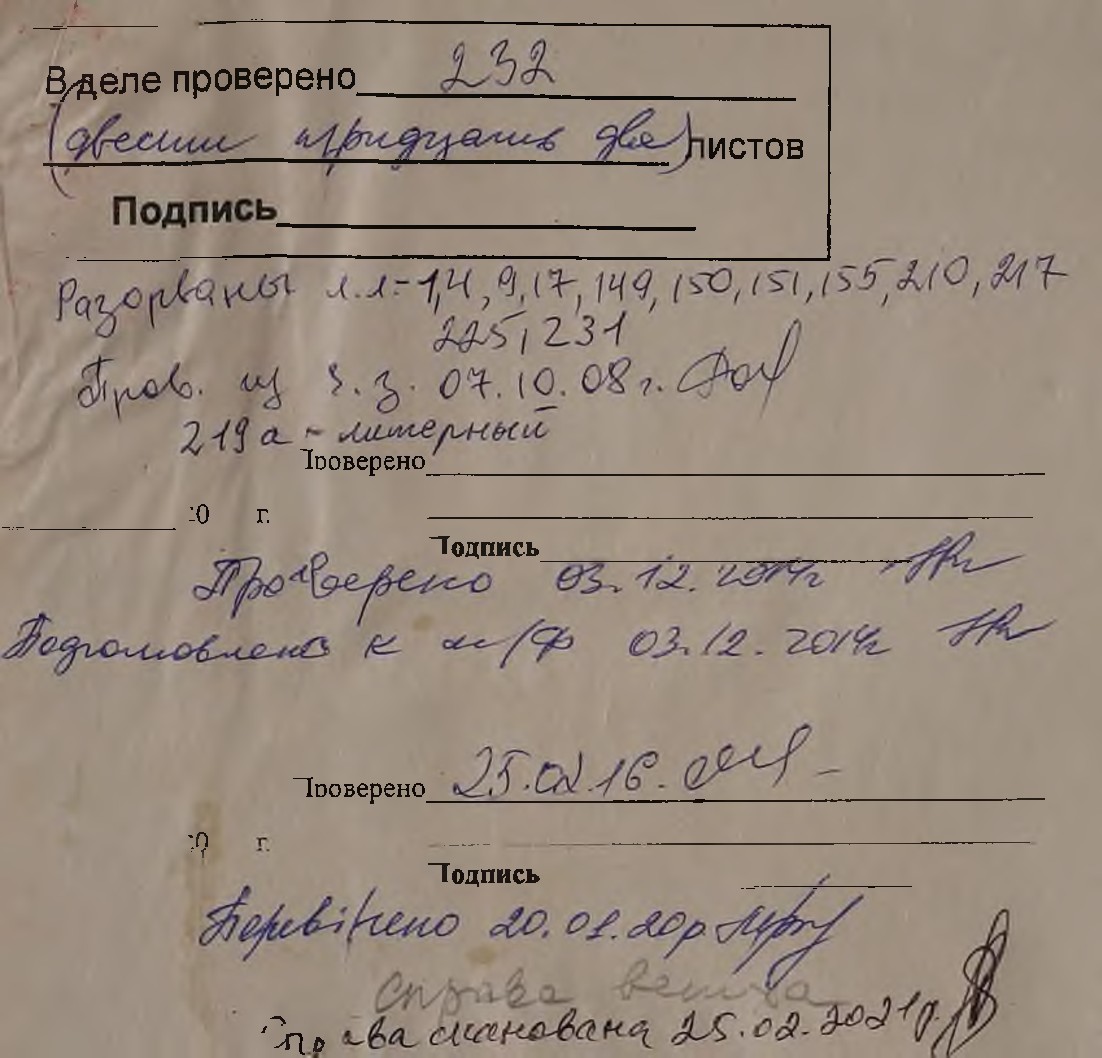 В деле проверено 232
(двести тридцать два) листов
Подпись
Разорваны л.л-1,4,9,17,149,150,151,155,210,217
225,231
Пров. из х.з. 07.10.08 г.
219а - литерный
Проверено
20 г.
Подпись
Проверено 03.12.2014г
Подготовлено к м/ф 03.12.2014г
Проверено 25.02.16.
20 г.
Подпись
Перевірено 20.01.20р
справа ветха
Справа сканована 25.02.2021р.